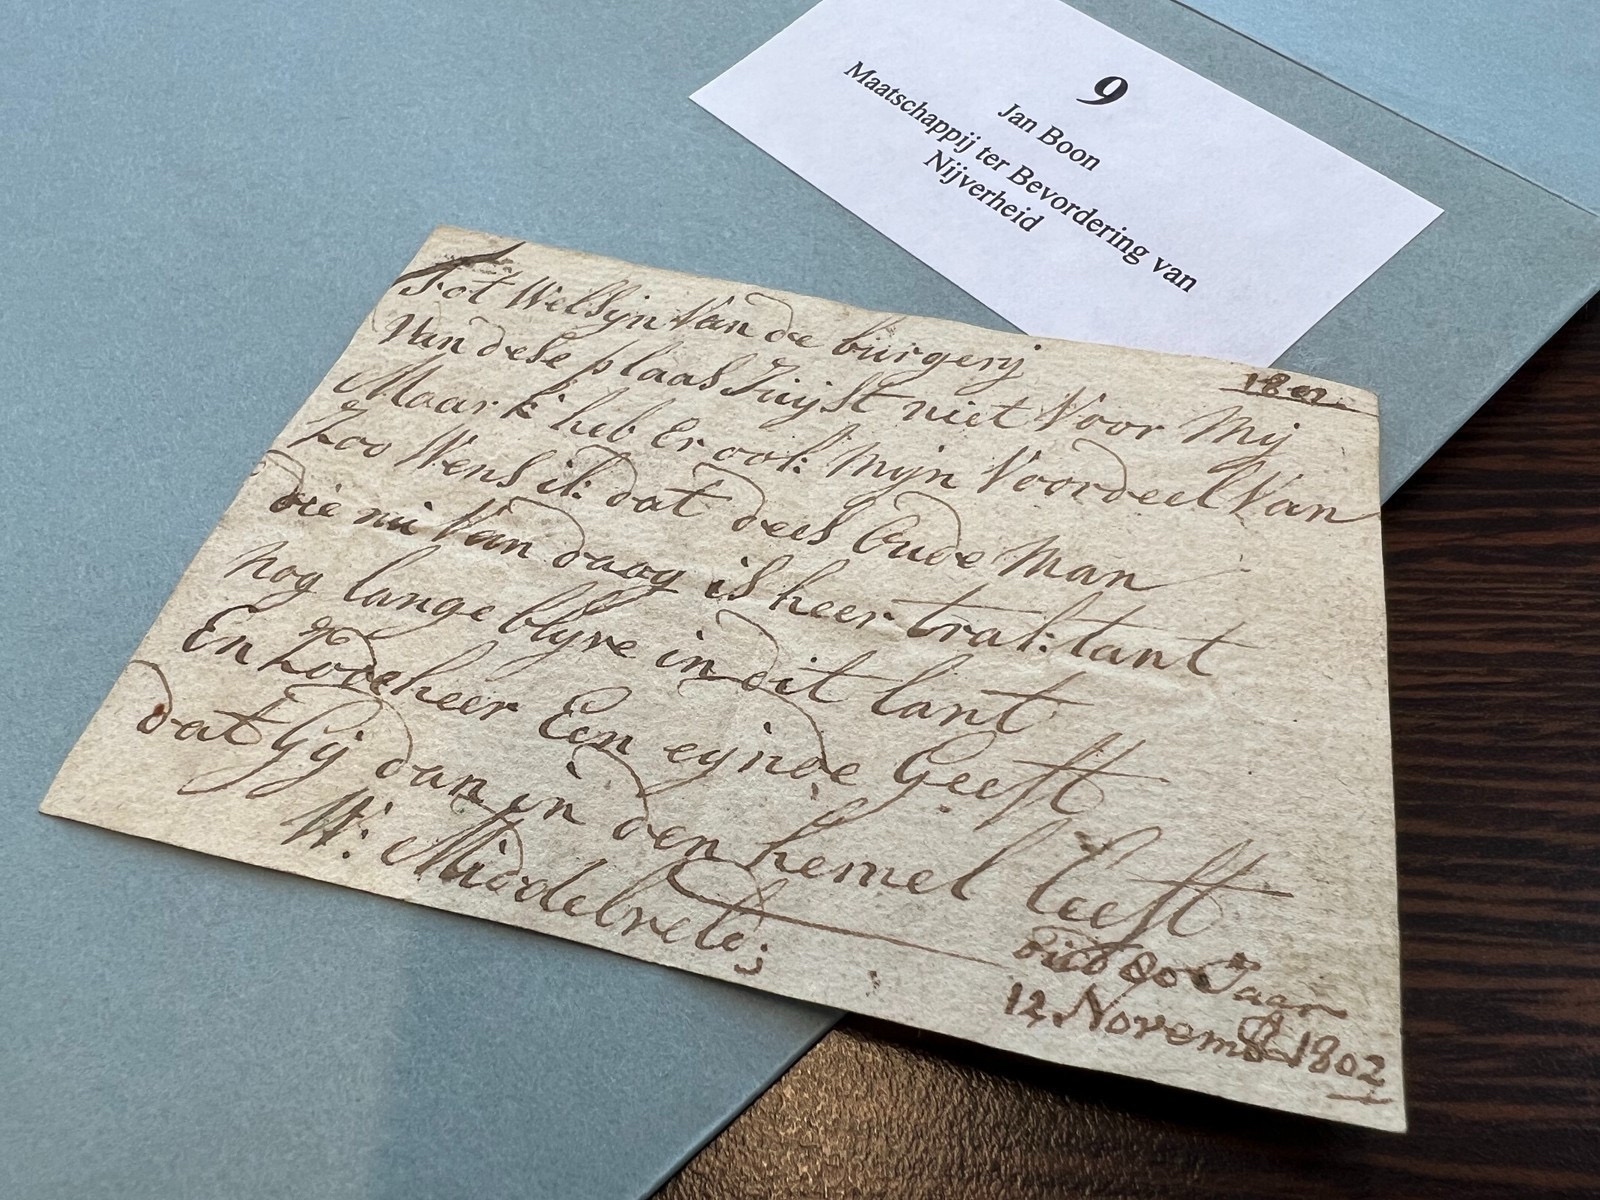 9
Jan Boon
Maatschappij ter Bevordering van
Nijverheid
1802
Tot Welsijn Van de burgerij
Van dese plaas Juijst niet Voor Mij
Maar k heb Er ook Mijn Voordeel Van
Zoo Wens ik dat dees Oude Man
die nu Van daag is heer traktant
nog lange blyve in dit lant
En Zo de heer Een eynde Geeft
dat Gij dan in den hemel leeft
W: Middelvelt;
oud 80 Jaar
12 Novemb 1802